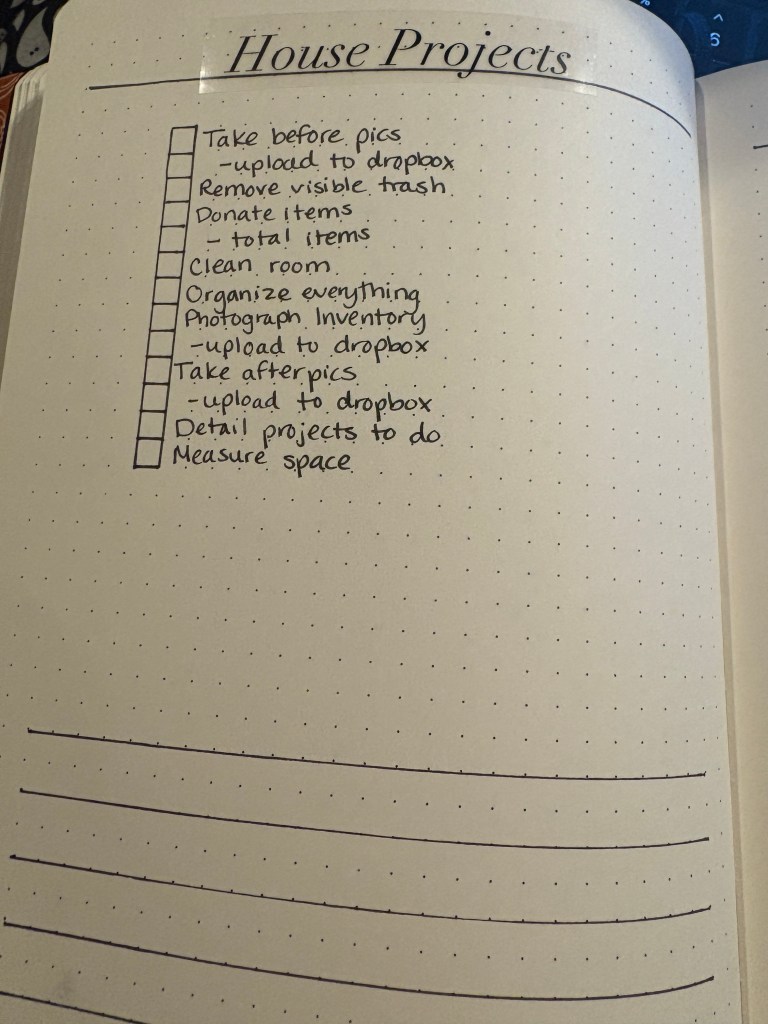 House Projects
Take before pics
-upload to dropbox
Remove visible trash
Donate items
- total items
Clean room
Organize everything
Photograph Inventory
-upload to dropbox
Take after pics
-upload to dropbox
Detail projects to do
Measure space
^
6